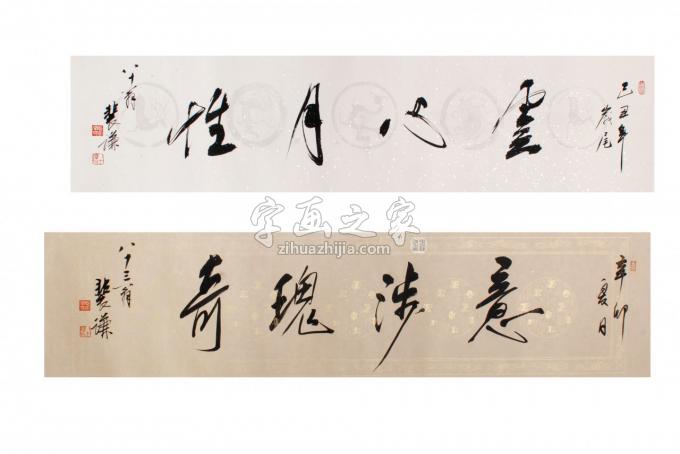 己丑年
歲尾
雲心月性
八十翁
裴謙
字画之家
zihuazhijia.com
辛卯
夏日
意涉瑰奇
八十三翁
裴謙